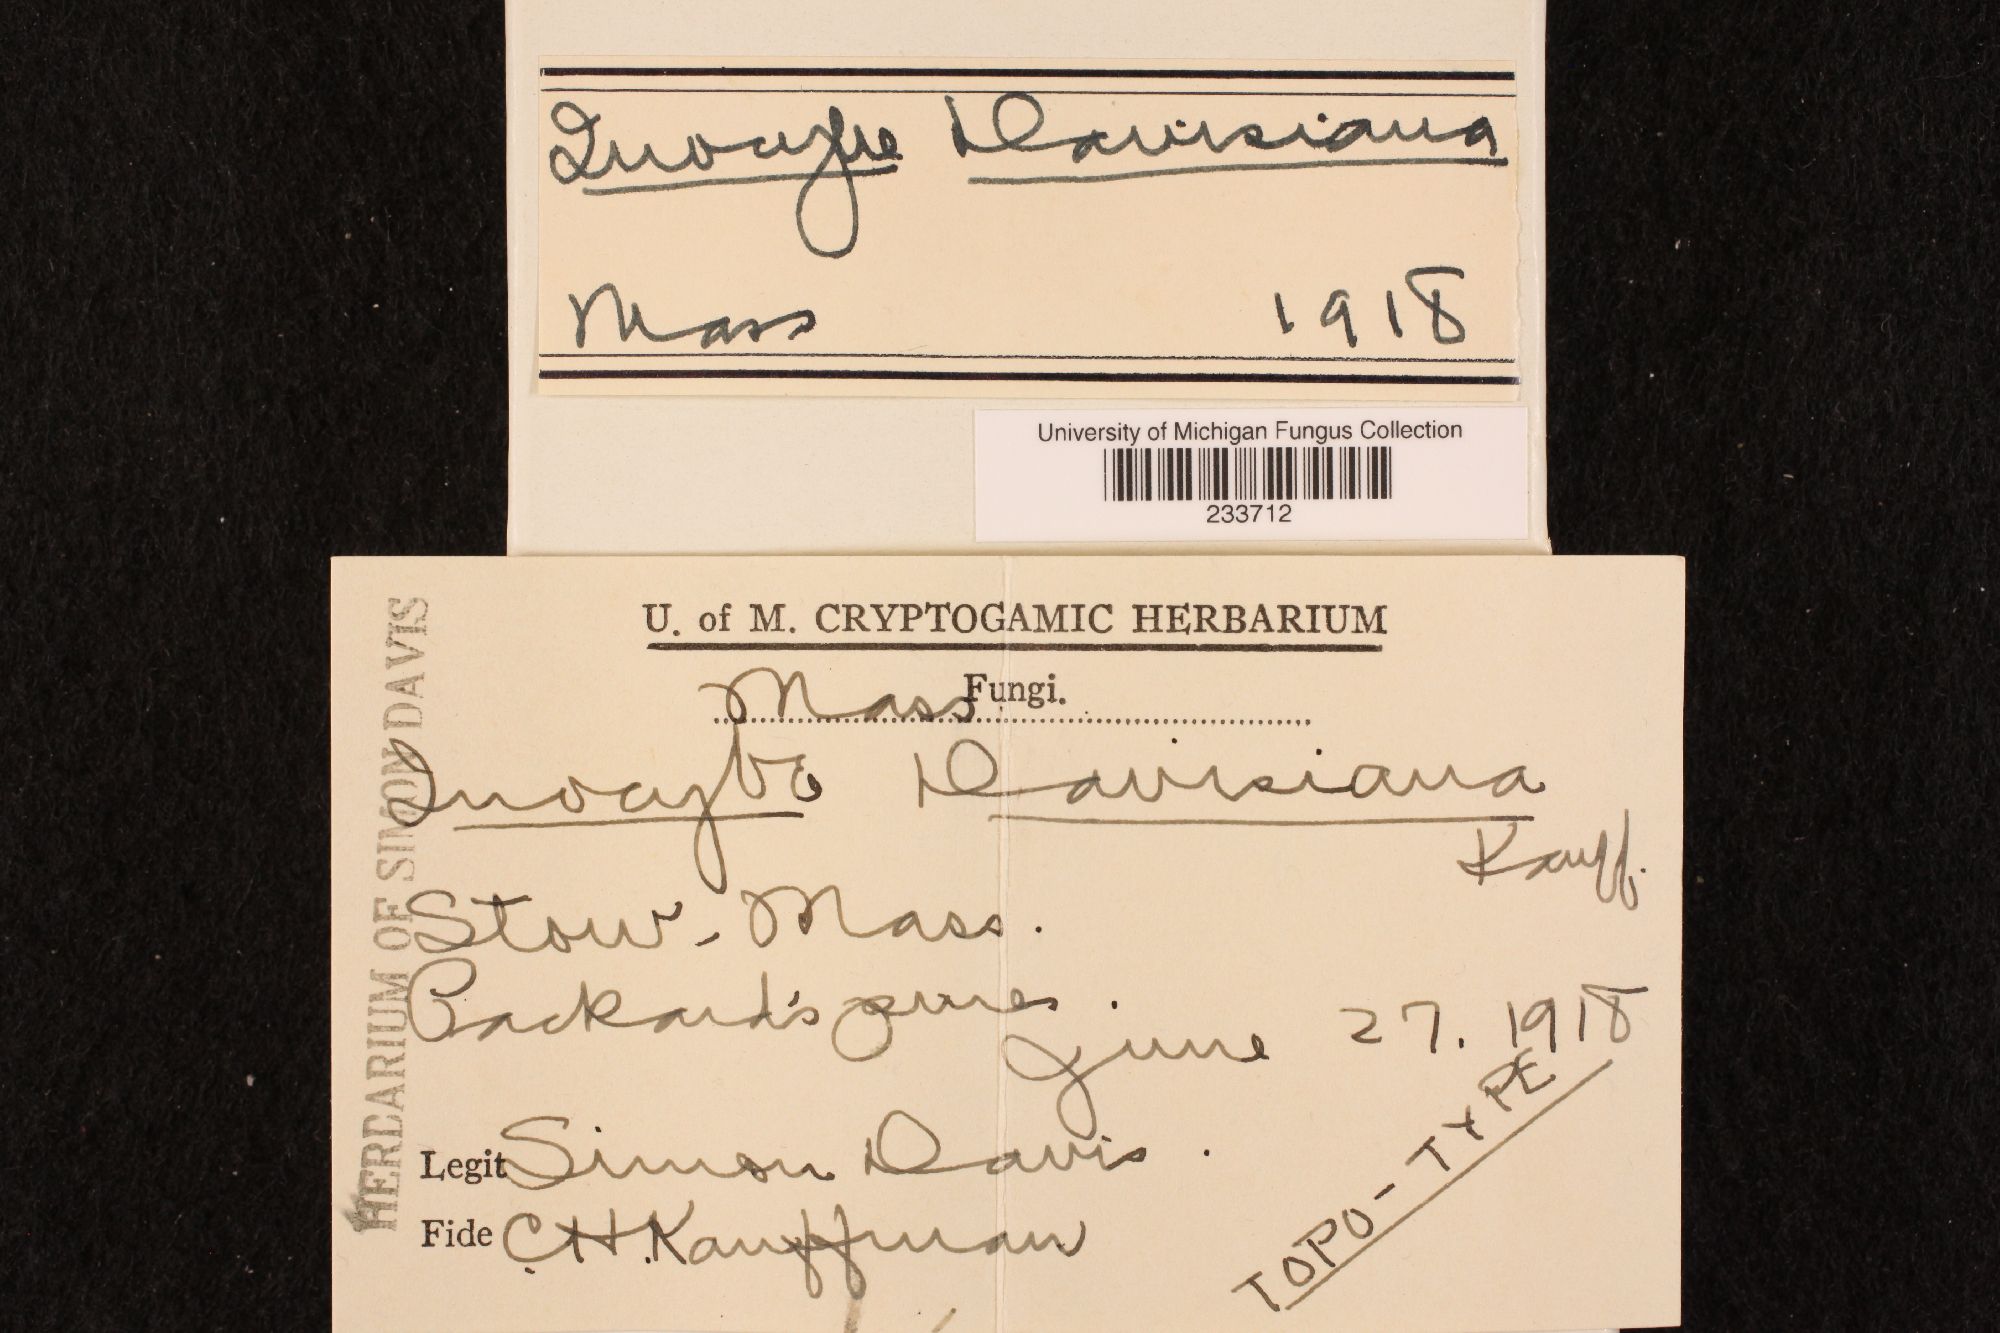 Inocybe Davisiana
Mass 1918
University of Michigan Fungus Collection
233712
U. of M. CRYPTOGAMIC HERBARIUM
Fungi.
Mass
Inocybe Davisiana
Kauff.
Stow. Mass.
Packard's pines.
June 27. 1918
Legit Simon Davis.
Fide C.H.Kauffman
TOPO-TYPE
HERBARIUM OF SIMON DAVIS